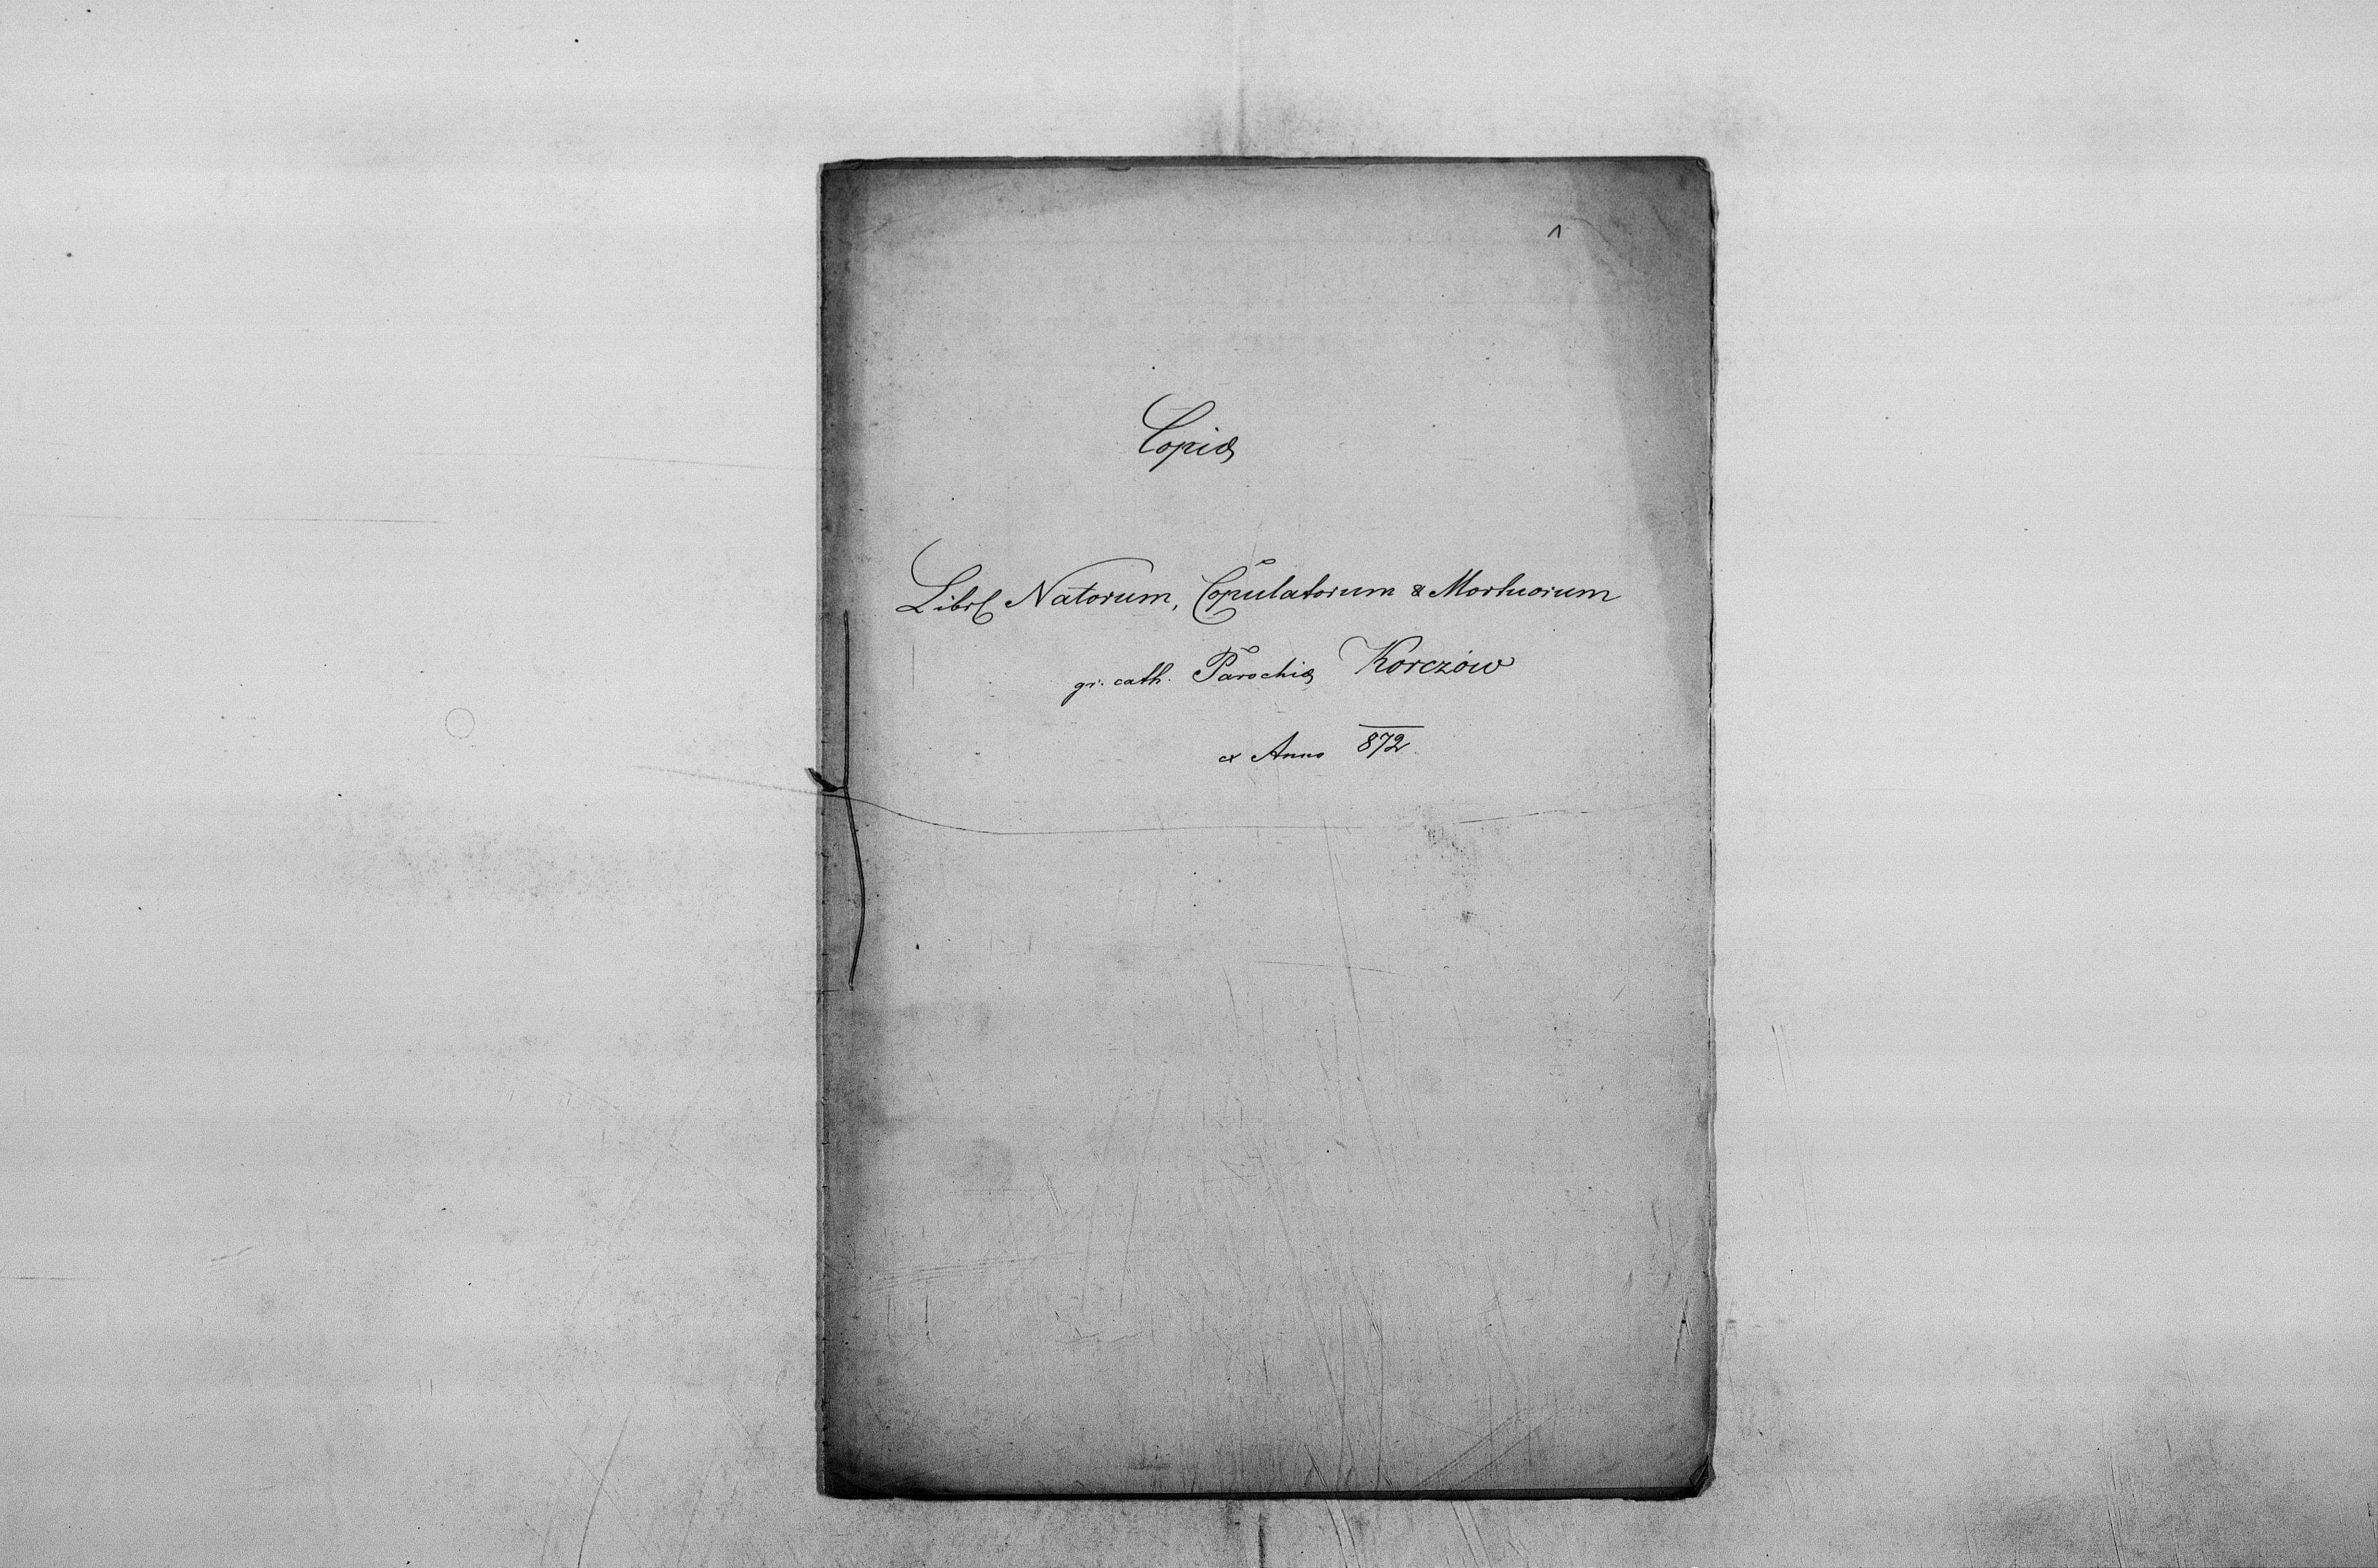 1
Copia
Libri Natorum, Copulatorum & Mortuorum
gr. cath. Parochiæ Korczów
ex Anno 872